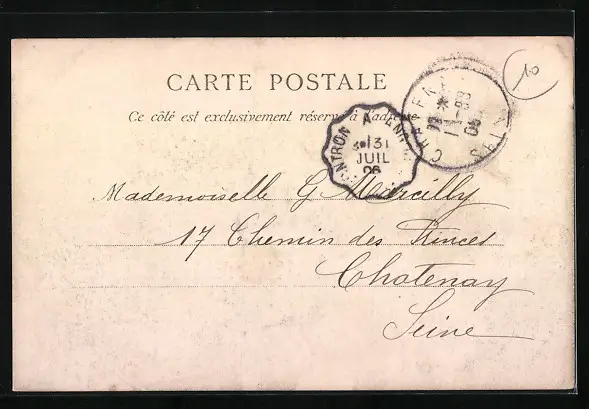 CARTE POSTALE
Ce côté est exclusivement réservé à l'adresse
10
31
JUIL
06
Mademoiselle G. Marcilly
17 Chemin des Princes
Chatenay
Seine